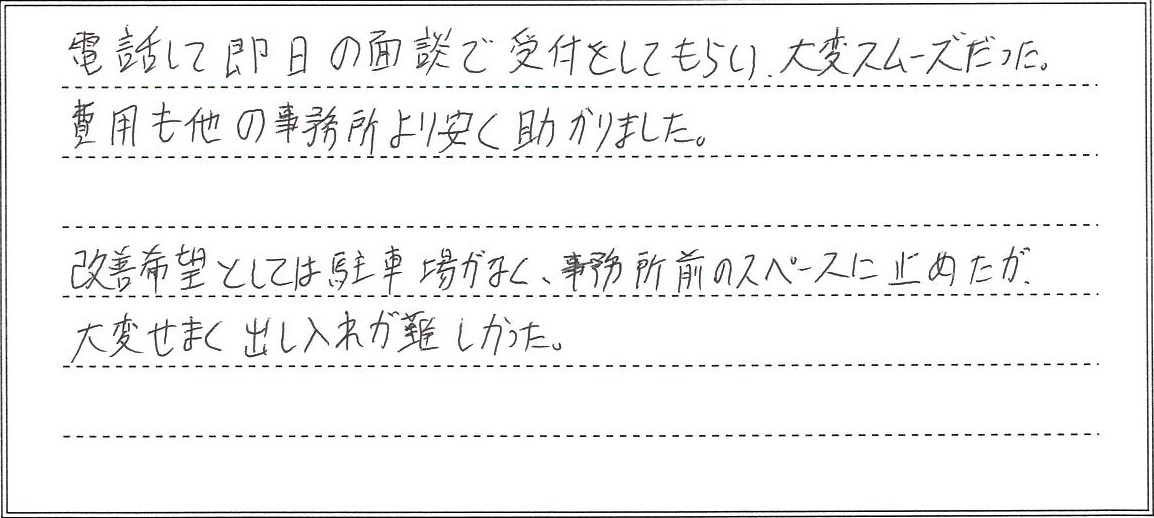 電話して即日の面談で受付をしてもらい、大変スムーズだった。
費用も他の事務所より安く助かりました。
改善希望としては駐車場がなく、事務所前のスペースに止めたが、
大変せまく出し入れが難しかった。